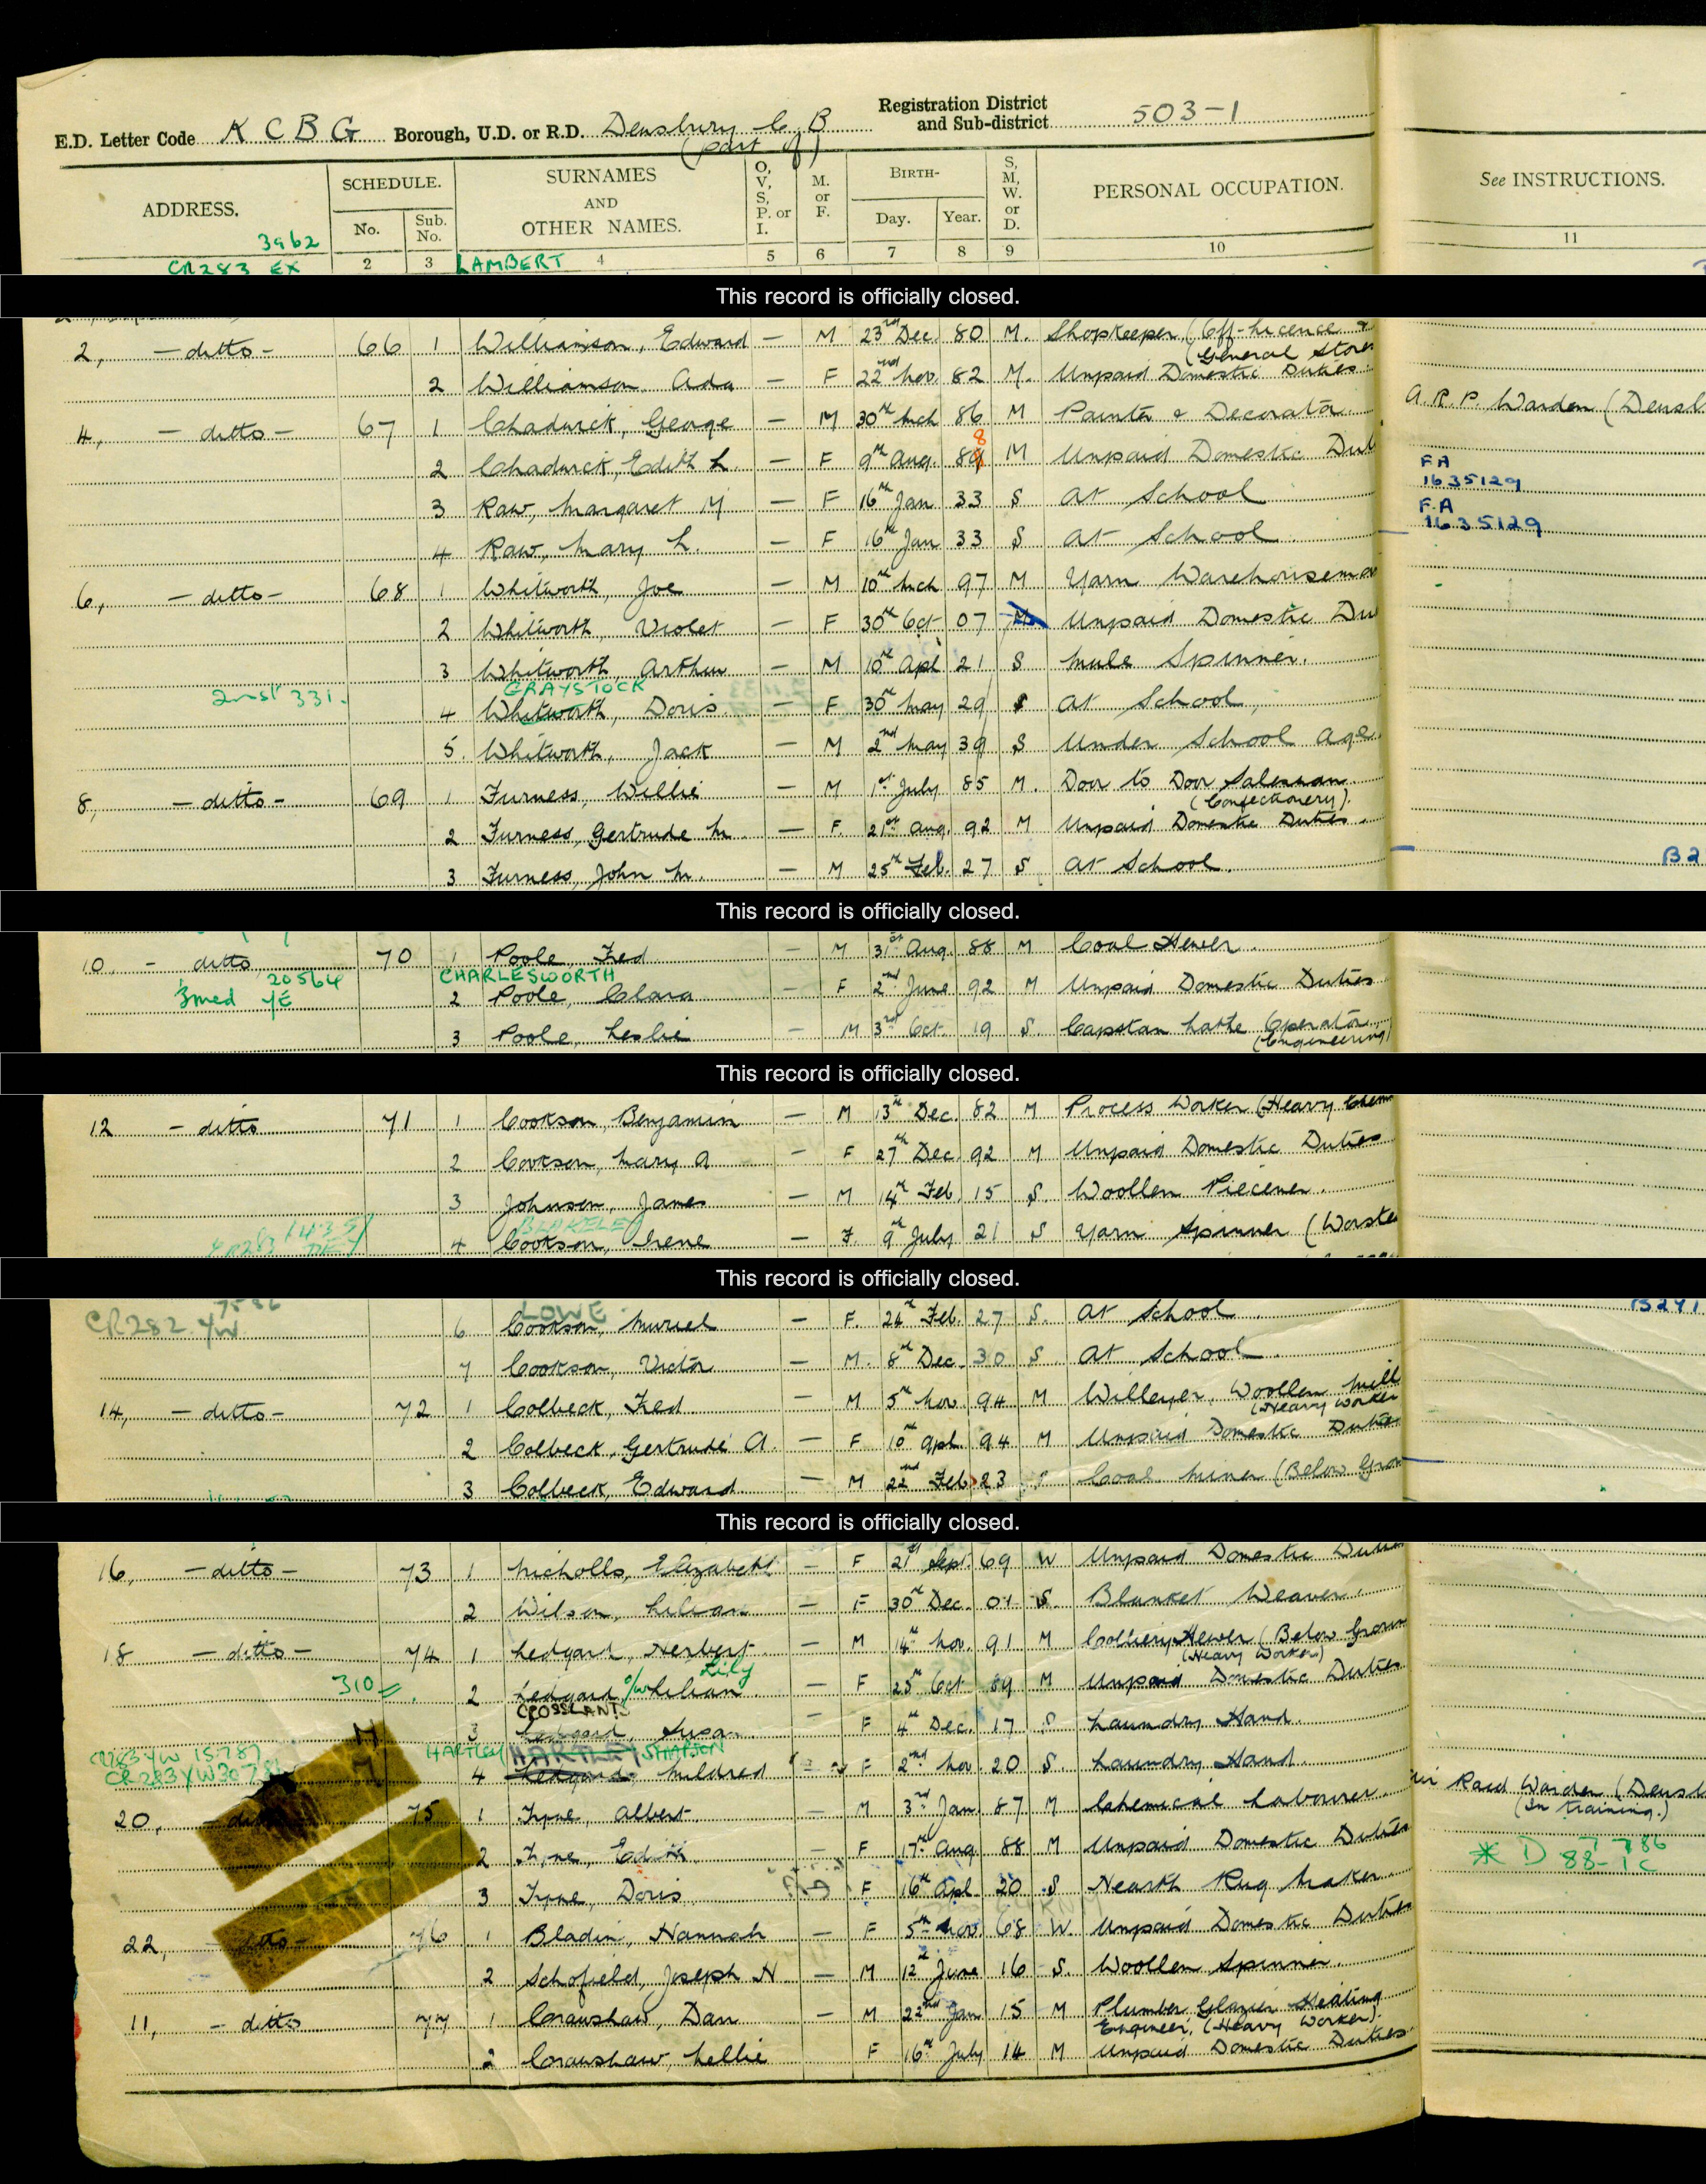 E.D. Letter Code K C B G Borough, U.D. or R.D. Dewsbury C.B. (part of) Registration District and Sub-district 503-1
ADDRESS. SCHEDULE. No. Sub. No. SURNAMES AND OTHER NAMES. O, V, S, P. or I. M. or F. BIRTH- Day. Year. S, M, W. or D. PERSONAL OCCUPATION. See INSTRUCTIONS.
3962
CR283 EX 2 3 LAMBERT 4 5 6 7 8 9 10 11
This record is officially closed.
2, - ditto - 66 1 Williamson, Edward - M 23rd Dec. 80 M. Shopkeeper (Off-licence &
(General Store
2 Williamson, Ada - F 22nd Nov. 82 M. Unpaid Domestic Duties.
4, - ditto - 67 1 Chadwick, George - M 30th Mch 86 M Painter & Decorator A.R.P. Warden (Dewsb
2 Chadwick, Edith L. - F 9th Aug. 89 8 M Unpaid Domestic Dut
FA
1635129
3 Raw, Margaret M - F 16th Jan 33 S at School
F.A
1635129
4 Raw, Mary L. - F 16th Jan 33 S at School
6, - ditto - 68 1 Whitworth, Joe - M 10th Mch 97 M Yarn Warehousema
2 Whitworth, Violet - F 30th Oct 07 M Unpaid Domestic Du
3 Whitworth, Arthur - M 10th Apl 21 S Mule Spinner.
GRAYSTOCK
331. 4 Whitworth, Doris. - F 30th May 29 S at School,
5. Whitworth, Jack - M 2nd May 39 S Under School Age.
8, - ditto - 69 1 Furness, Willie - M 1st July 85 M. Door to Door Salesman
(Confectionery).
2 Furness, Gertrude M. - F. 21st Aug. 92 M Unpaid Domestic Duties.
3 Furness, John M. - M 25th Feb. 27 S at School. B2
This record is officially closed.
10, - ditto 70 1 Poole, Fred - M 31st Aug. 88 M Coal Hewer.
20564 CHARLESWORTH
YE 2 Poole, Clara - F 2nd June 92 M Unpaid Domestic Duties
3 Poole, Leslie - M 3rd Oct 19 S. Capstan Lathe Operator,
(Engineering)
This record is officially closed.
12 - ditto 71 1 Cookson, Benjamin - M 13th Dec. 82 M Process Worker (Heavy Chem
2 Cookson, Mary A - F 27th Dec. 92 M Unpaid Domestic Duties
3 Johnson, James - M 14th Feb. 15 S. Woollen Piecener.
BLAKELEY
4 Cookson, Irene - F. 9th July 21 S Yarn Spinner (Worste
This record is officially closed.
CR282 YW LOWE
6 Cookson, Muriel - F. 24th Feb. 27 S. at School.
7 Cookson, Victor - M. 8th Dec. 30 S. at School.
14, - ditto - 72 1 Colbeck, Fred - M 5th Nov. 94 M Willeyer, Woollen Mill
(Heavy Worker
2 Colbeck, Gertrude A. - F 10th Apl. 94 M Unpaid Domestic Duties
3 Colbeck, Edward - M 22nd Feb 23 S Coal Miner (Below Grou
This record is officially closed.
16, - ditto - 73 1 Nicholls, Elizabeth - F 21st Sept. 69 W Unpaid Domestic Duties
2 Wilson, Lilian - F 30th Dec. 01 S. Blanket Weaver.
18 - ditto - 74 1 Ledgard, Herbert - M 14th Nov. 91 M Colliery Hewer (Below Groun
(Heavy Worker)
Lily
310 2 Ledgard, o/w Lilian - F 25th Oct 89 M Unpaid Domestic Duties
CROSSLAND
3 Ledgard, Susan - F 4th Dec. 17 S. Laundry Hand.
CR283 YW HARTLEY HARTLEY
CR283 YW 4 Ledgard, Mildred - F 2nd Nov 20 S. Laundry Hand.
20, - ditto 75 1 Tyne, Albert - M 3rd Jan. 87 M Chemical Labourer. Air Raid Warden (Dewsb
(In training.)
2 Tyne, Edith - F 17th Aug 88 M Unpaid Domestic Duties
* D 7 786
88-1C
3 Tyne, Doris. F 16th Apl. 20 S Hearth Rug Maker
22, - ditto - 76 1 Bladin, Hannah - F 5th Nov. 68 W. Unpaid Domestic Duties
2 Schofield, Joseph H. - M 12th June 16 S. Woollen Spinner.
11, - ditto 77 1 Crawshaw, Dan - M 22nd Jan 15 M Plumber Glazier Heating
Engineer, (Heavy Worker).
2 Crawshaw, Nellie F 16th July 14 M Unpaid Domestic Duties